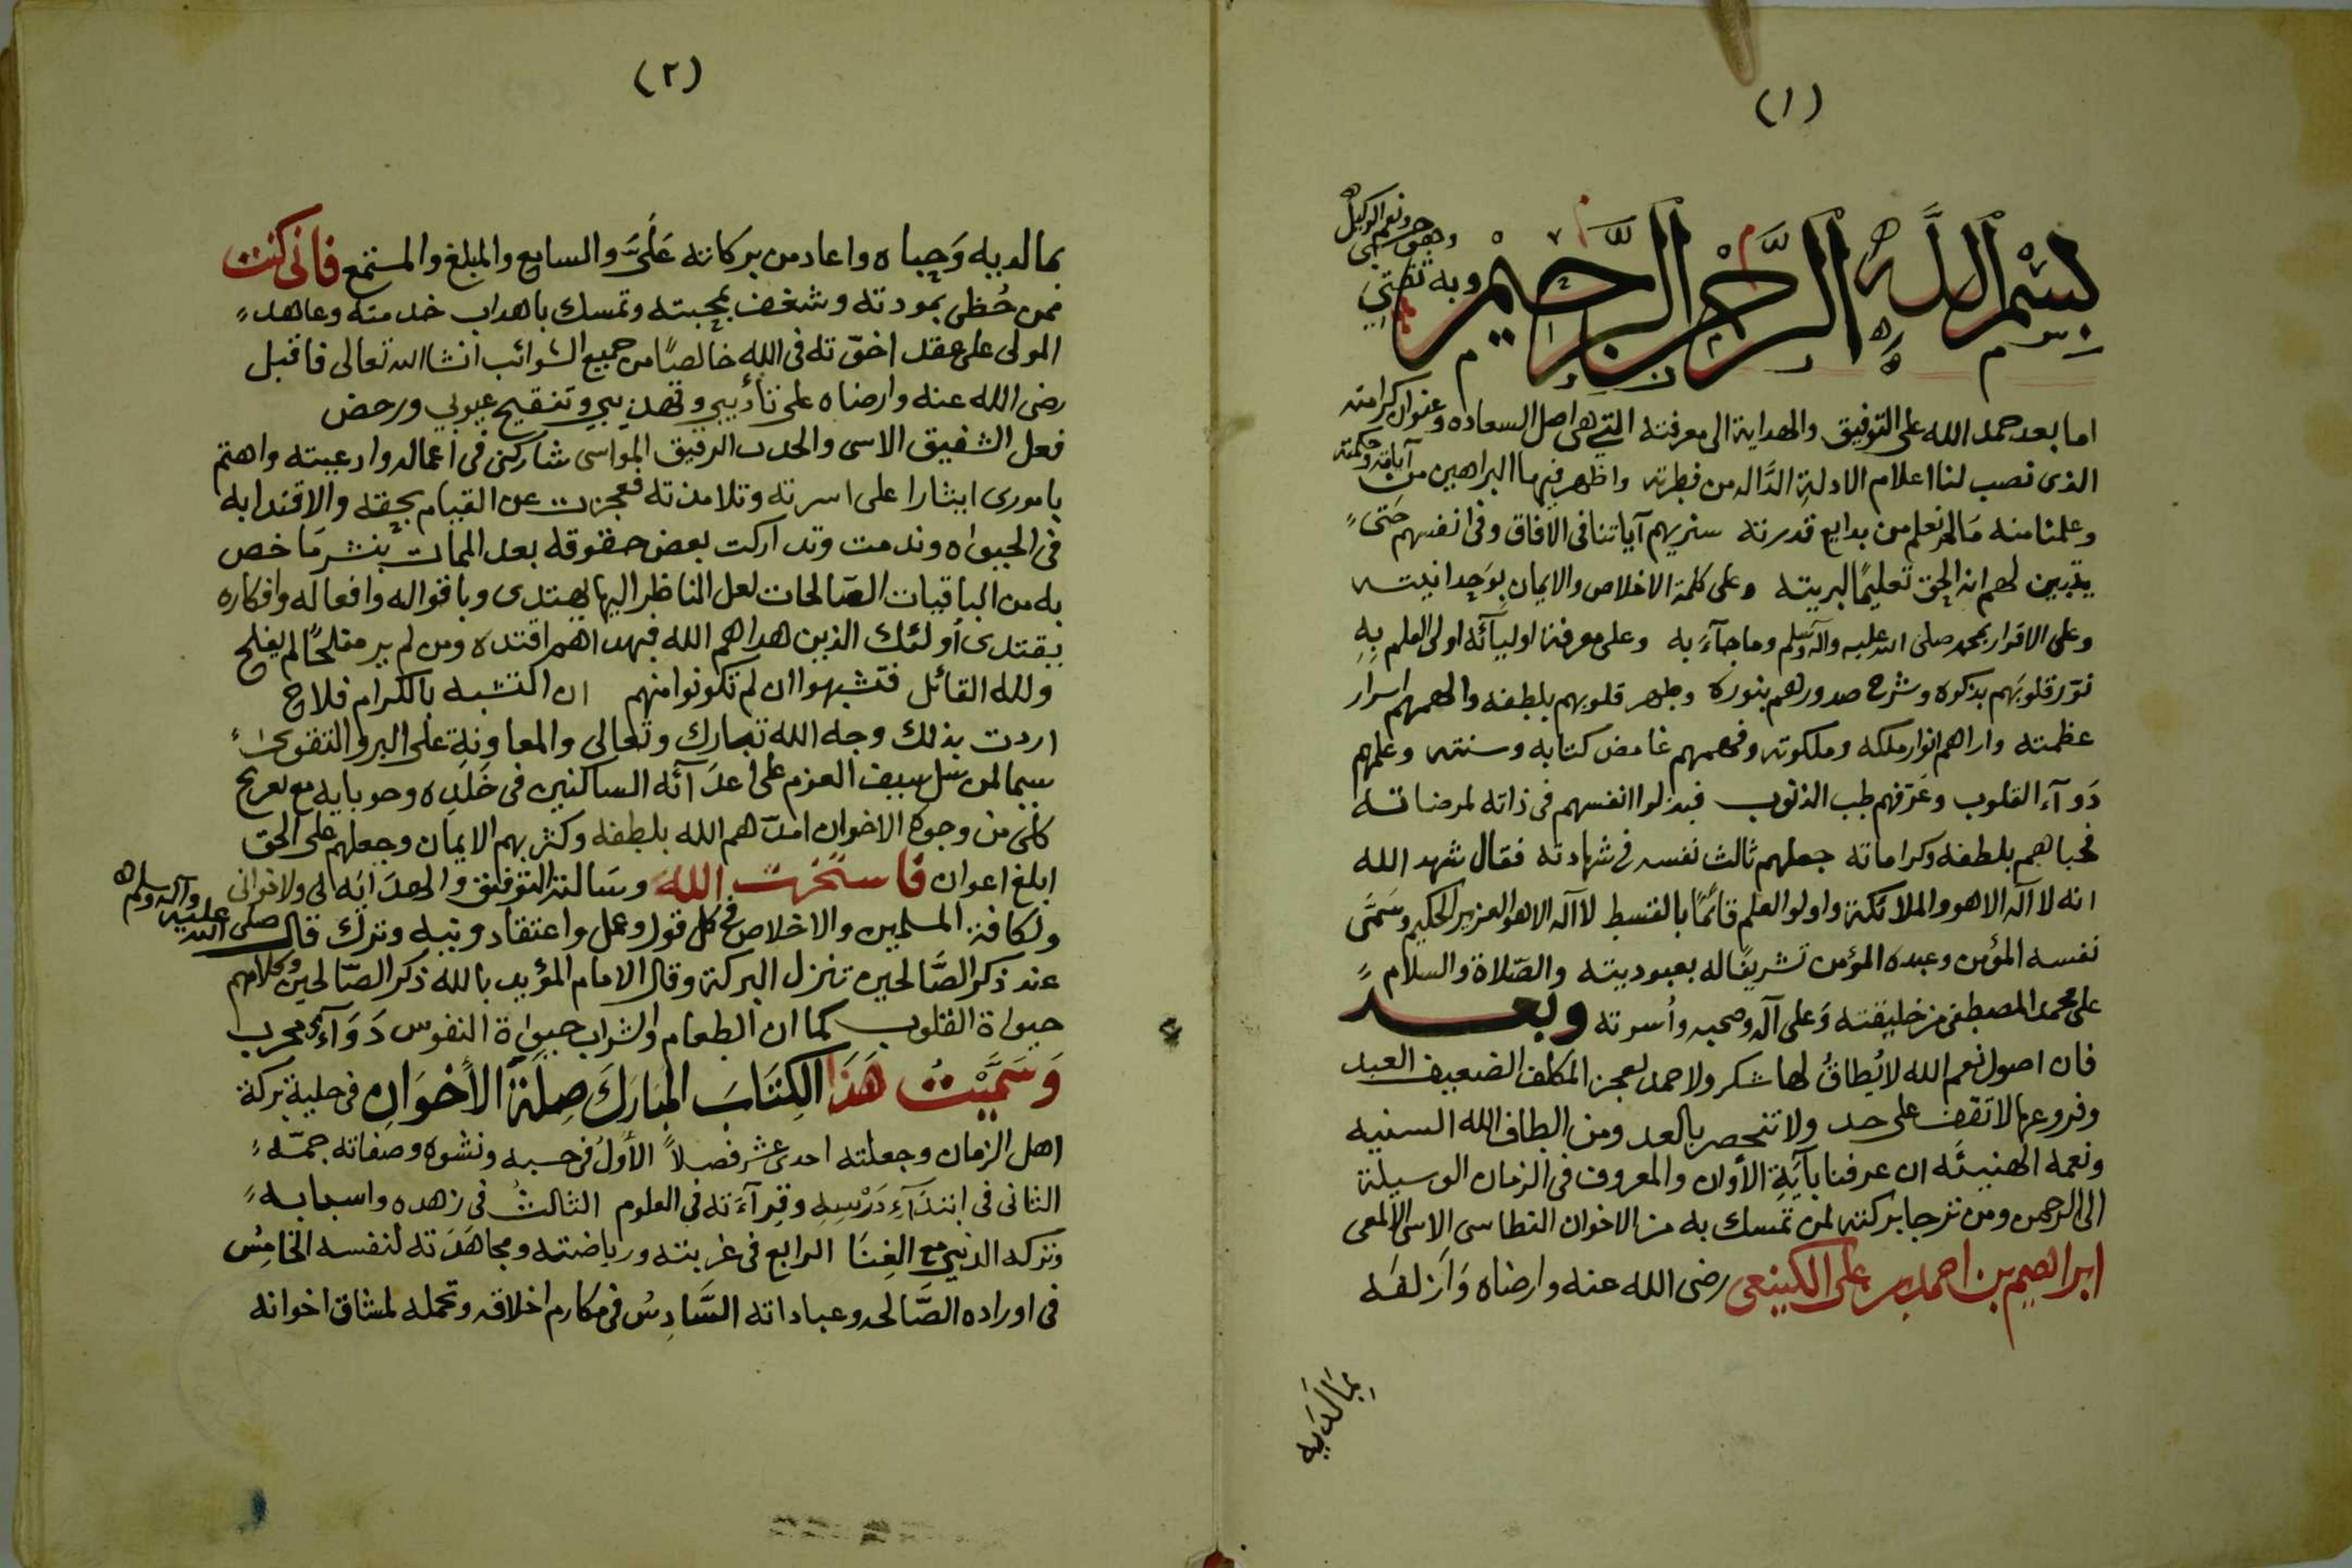 (١)
بسم الله الرحمن الرحيم وبه ثقتي
وهو حسبي ونعم الوكيل
اما بعد حمد الله على التوفيق والهداية الى معرفته التي هي اصل السعاده وعنوان كرامته
الذى نصب لنا اعلام الادلة الدَّاله من فطرته واظهر فيها البراهين من آياته وحكمته
وعلمنا منه مَالم نعلم من بدايع قدرته سنريهم آياتنا فى الآفاق وفى انفسهم حَتى
يتبين لهم انه الحق تعليمًا لبريته وعلى كلمة الاخلاص والايمان بوَحدانيته
وعلى الاقرار بمحمد صلى الله عليه وآله وسلم وما جآءَ به وعلى معرفة اوليآئه اولى العلم بِهِ
نوّر قلوبَهم بذكره وشرح صدورهم بنوره وطهر قلوبهم بلطفه والهمهم اسرار
عظمته واراهم انوار ملكه وملكوته وفهمهم غامض كتابه وسنته وعلمهم
دَوآء القلوب وعَرّفهم طب الذنوب فبذلوا انفسهم فى ذاته لمرضاته
فحباهم بلطفه وكراماته جعلهم ثالث نفسه فى شهادته فقال شهد الله
انه لا آله الا هو والملائكة واولوا العلم قائمًا بالقسط لا آله الا هو العزيز الحكيم وسَمَّى
نفسه المؤمن وعبده المؤمن تشريفًا له بعبوديته والصّلاة والسلام
على محمد المصطفى من خليقته وَعلى آله وصحبه وأسرته وبعد
فان اصول نعم الله لا يُطاقُ لها شكر ولا حمد لعجز المكلف الضعيف العبد
وفروعها لا تقف على حد ولا تنحصر بالعد ومن الطاف الله السنيه
ونعمه الهنيئَه ان عرفنا بآيَةِ الأوان والمعروف فى الزمان الوسيلة
الى الرحمن ومن ترجا بركته لمن تمسك به من الاخوان النطاسى الاسى الألمعى
ابراهيم بن احمد بن على الكينعى رضى الله عنه وارضاه وَازلفَه
بمَالَدَيه
(٢)
بمالديه وَحباه واعاد من بركاته عَلَيَّ والسامع والمبلغ والمستمع فانى كنت
ممن حُظى بمودته وشغف بمحبته وتمسك باهداب خدمته وعاهد
المولى على عقد اخوّته فى الله خالصًا من جميع الشوائب انشا الله تعالى فاقبل
رضى الله عنه وارضاه على تأديبي وتهذيبي وتنقيح عيوبي ورحض
فعل الشفيق الاسى والحدب الرفيق المواسى شاركنى فى اعماله وادعيته واهتم
بامورى ايثارا على اسرته وتلامذته فعجزت عن القيام بحقه والاقتدا به
فى الحيواه وندمت وتداركت بعض حقوقه بعد الممات بنشر مَا خص
به من الباقيات الصّالحات لعل الناظر اليها يهتدى وباقواله وافعاله وافكاره
يقتدى أولئك الذين هداهم الله فبهداهم اقتده ومن لم ير مفلحًا لم يفلح
ولله القائل فتشبهوا ان لم تكونوا منهم ان التشبه بالكرام فلاح
اردت بذلك وجه الله تبارك وتعالى والمعاونة على البر والتقوى
سيما لمن سل سيف العزم على اعدَآئه الساكنين فى خَلَدِه وحوبايه مع تعريج
كلى من وجوه الاخوان امدّهم الله بلطفه وكثر بهم الايمان وجعلهم على الحق
ابلغ اعوان فاستخرت الله وسَالته التوفيق والهدَايَه لى ولاخوانى
ولكافة المسلمين والاخلاص فى كل قول وعمل واعتقاد ونيه وترك قال صلى الله عليه وآله وسلم
عند ذكر الصَّالحين تنزل البركة وقال الامام المؤيد بالله ذكر الصّالحين وكلامهم
حيواة القلوب كما ان الطعام والشراب حيواة النفوس دَوَآءٌ مجرب
وَسَمَّيْتُ هَذَا الكِتَابَ المبَارَكَ صِلَةَ الأخوَانِ فى حلية بركة
اهل الزمان وجعلته احدى عشر فصلاً الأولُ فى حسبه ونشوه وصفاته جمّه
الثانى فى ابتدَآءِ دَرْسِهِ وقِرآءَته فى العلوم الثالثُ فى زهده واسبابه
وتركه الدنيى مع الغِنَا الرابع فى غربته ورياضته ومجاهَدَته لنفسه الخامِسُ
فى اوراده الصَّالحه وعباداته السَّادِسُ فى مكارم اخلاقه وتحمله لمشاق اخوانه